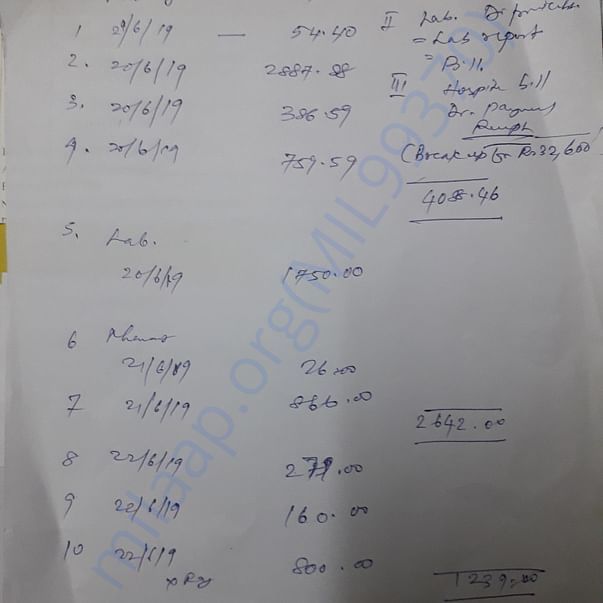 1 — 54.40 II Lab.
2. 20/6/19 2887.88 = Lab report
= Bill
3. 20/6/19 386.59 III Hospital Bill
Dr. Payment
Receipt
4. 20/6/19 759.59 (Break up for Rs 32,600)
4088.46
5. Lab.
20/6/19 1750.00
6
21/6/19 26.00
7 21/6/19 866.00
2642.00
8 22/6/19 279.00
9 22/6/19 160.00
10 22/6/19 800.00
x Ray 1239.00
milaap.org(MIL99370)